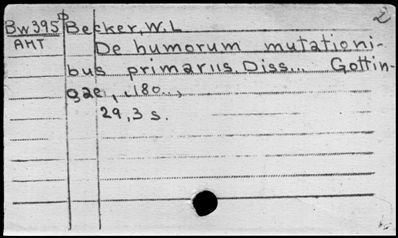 Bw395 Becker, W. L
AHT
De humorum mutationi-
bus primariis. Diss... Gottin-
gae, 180..,
29,3 s.
2